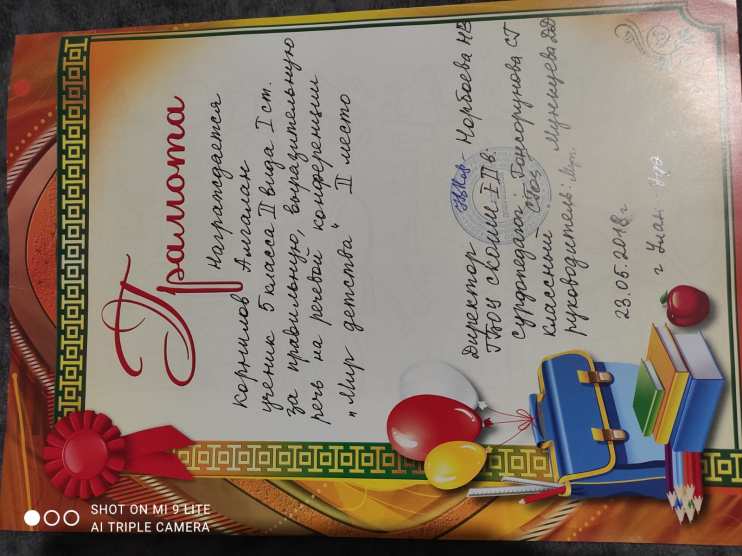 Грамота
Награждается
Корнилов Амгалан
ученик 5 класса II вида I ст.
за правильную, выразительную
речь на речевой конференции
„Мир детства“ II место
Директор Норбоева НВ
ГБОУ СКОШИ I-II в.
Сурдопедагог: Гонсорунова СГ
Классный
руководитель: Мункуева ДД
23.05.2018 г
г Улан-Удэ
SHOT ON MI 9 LITE
AI TRIPLE CAMERA